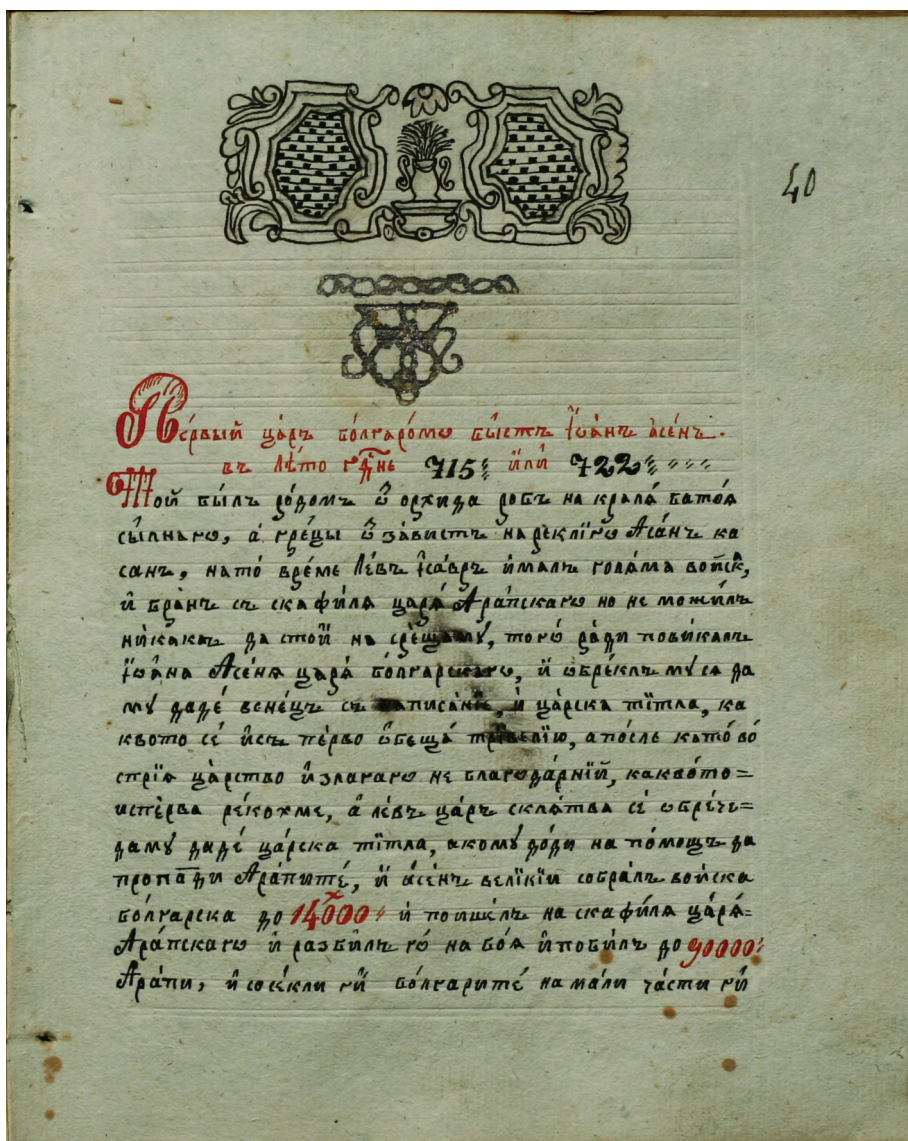 40
Пе́рвый ца́рь бо́лгаромъ бы́сть Їѡа́нъ асе́нь.
въ лѣ́то гд҃не 715 и́ли 722
Той былъ ро́домъ ѿ орхи́да робъ на краля́ бато́я
си́лнагѡ, а гре́цы ѿ за́висть нарекли́ гѡ Аса́нъ ка
санъ, на то́ вре́ме Ле́въ Їса́връ и́малъ голя́ма войска̀,
и́ бра́нь съ скафи́ля царя́ Ара́пскагѡ но не мо́жилъ
ни́какъ да стои́ на сре́щаму, тогѡ̀ ра́ди пови́калъ
Їѡа́на Асе́ня царя́ бо́лгарскагѡ, и́ ѡбре́клъ му ся да
му даде́ вене́цъ съ написа́нїе, и́ ца́рска ти́тла, ка
квото се́ и́съ пе́рво ѡбеща̀ тривелїю, а после като̀ во́
сприя̀ ца́рство и́злагагѡ не благода́рнїй, какво́то=
испе́рва ре́кохме, а́ ле́въ ца́рь скля́тва се́ ѡбрече=
даму даде́ ца́рска ти́тла, акому до́йди на по́мощъ да
пропади Ара́пите́, и́ а́сенъ вели́кїи собра́лъ во́йска
бо́лгарска до 14000 и́ поишелъ на скафи́ля царя́=
Ара́пскагѡ и́ разби́лъ гѡ̀ на бо́я и́ поби́лъ до 90000
Ара́пи, и́ сѣ́кли ги́ бо́лгарите́ на ма́ли ча́сти ги́